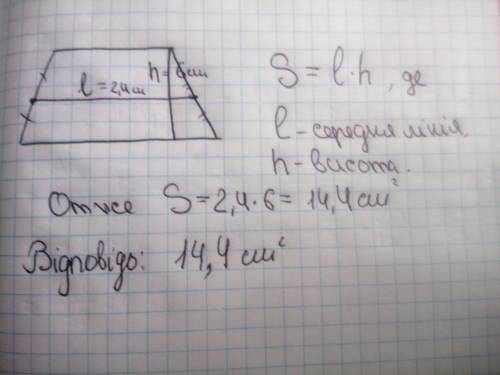 h = 6 см
l = 2,4 см
S = l · h, де
l - середня лінія
h - висота.
Отже S = 2,4 · 6 = 14,4 см²
Відповідь: 14,4 см²